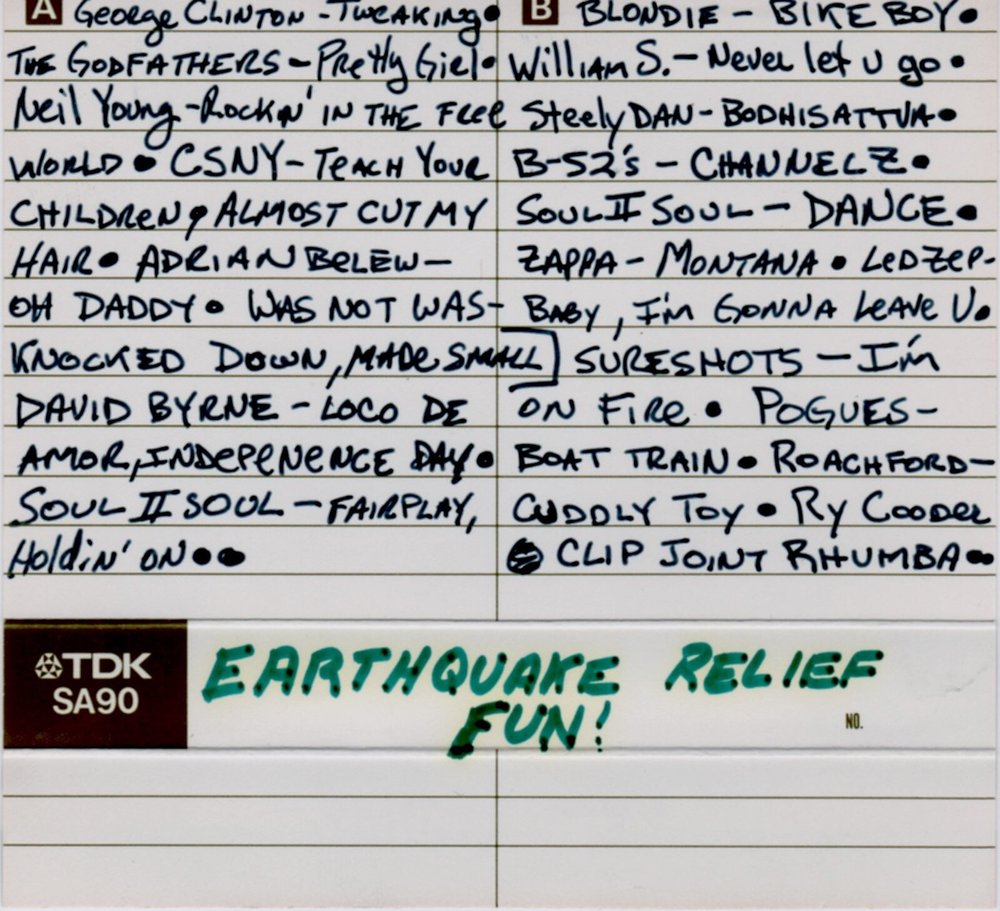 A GEORGE CLINTON - TWEAKING •
THE GODFATHERS - Pretty Girl •
Neil Young - Rockin' IN THE FREE
WORLD • CSNY - TEACH YOUR
CHILDREN, ALMOST CUT MY
HAIR • ADRIAN BELEW -
OH DADDY • WAS NOT WAS -
KNOCKED DOWN, MADE SMALL
DAVID BYRNE - LOCO DE
AMOR, INDEPENENCE DAY •
SOUL II SOUL - FAIRPLAY,
Holdin' ON ••
B BLONDIE - BIKE BOY •
William S. - Never let u go •
Steely DAN - BODHISATTVA •
B-52's - CHANNEL Z •
SOUL II SOUL - DANCE •
ZAPPA - MONTANA • LED ZEP -
BABY, I'm GONNA LEAVE U •
SURESHOTS - I'm
ON FIRE • POGUES -
BOAT TRAIN • ROACHFORD -
CUDDLY TOY • Ry Cooder
CLIP JOINT RHUMBA ••
TDK
SA90
EARTHQUAKE RELIEF
FUN!
NO.